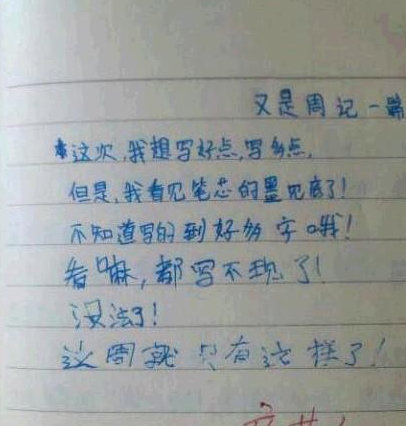 又是周记一篇
这次,我想写好点,写多点,
但是,我看见笔芯的墨见底了!
不知道写的到好多字哦!
看嘛,都写不现了!
没法了!
这周就只有这样了!